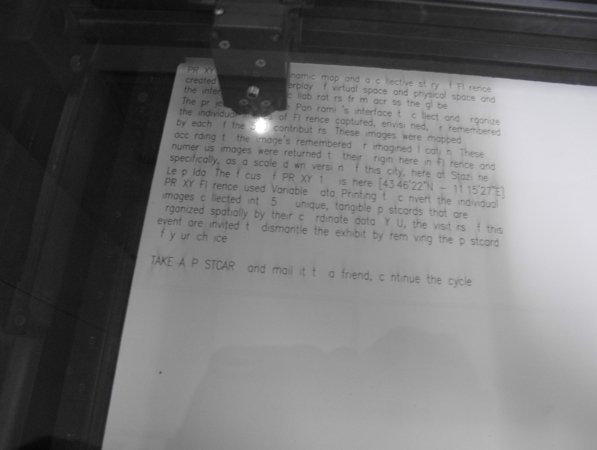 PR XY namic map and a c llective st ry f Fl rence
created erplay f virtual space and physical space and
the inter c llab rat rs fr m acr ss the gl be
The pr jec Pan rami 's interface t c llect and rganize
the individual of Fl rence captured, envisi ned, r remembered
by each f the contribut rs These images were mapped
acc rding t the image's remembered r imagined l cati n These
numer us images were returned t their rigin here in Fl rence and
specifically, as a scale d wn versi n f this city, here at Stazi ne
Le p lda The f cus f PR XY 1 is here [43 46'22"N - 11 15'27"E]
PR XY Fl rence used Variable ata Printing t c nvert the individual
images c llected int 5 unique, tangible p stcards that are
rganized spatially by their c rdinate data Y U, the visit rs f this
event are invited t dismantle the exhibit by rem ving the p stcard
f y ur ch ice
TAKE A P STCAR and mail it t a friend, c ntinue the cycle